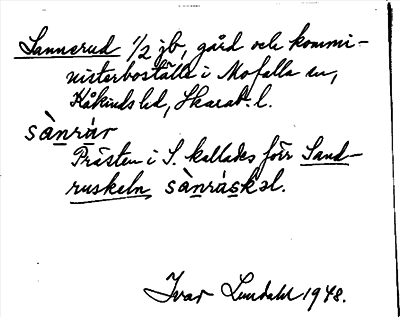 Sannerud 1/2 jb, gård och kommi-
nisterboställe i Mofalla sn,
Kåkinds hd, Skarab. l.
sànrár
Prästen i S. kallades förr Sand-
ruskeln, sànráskəl.
Ivar Lundahl 1948.